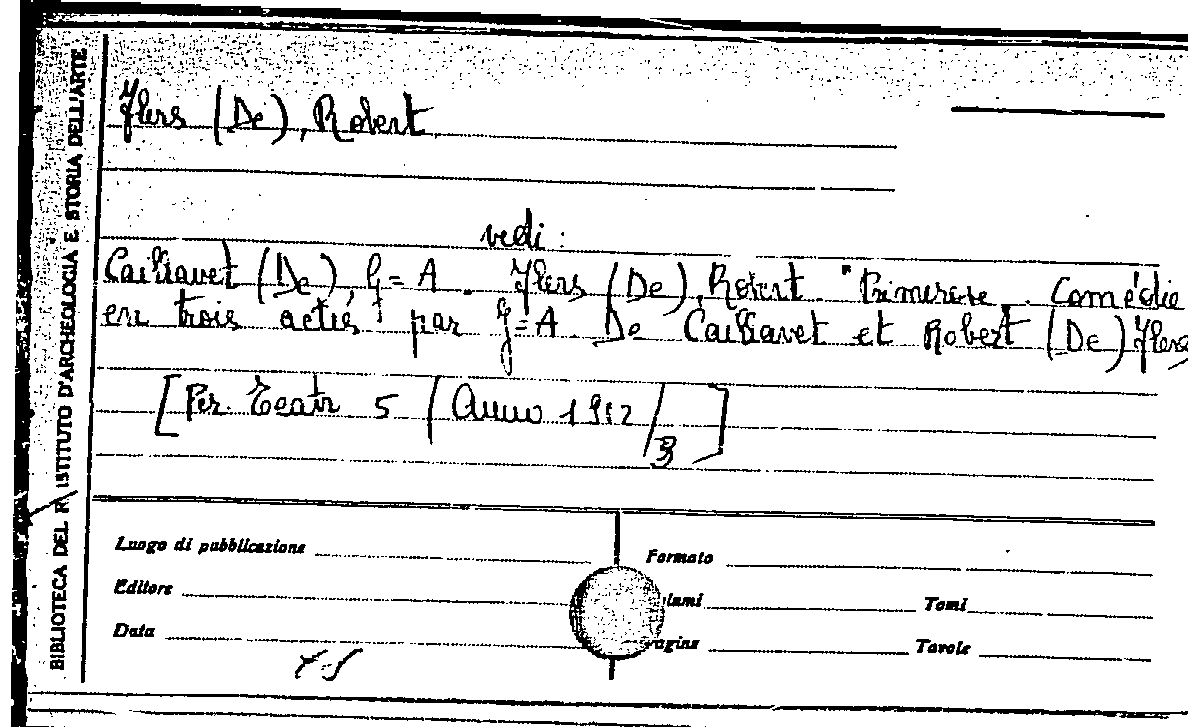 BIBLIOTECA DEL R. ISTITUTO D'ARCHEOLOGIA E STORIA DELL'ARTE
Flers (De), Robert
vedi:
Caillavet (De), G=A. Flers (De), Robert. "Primerose. Comédie
en trois actes" par G=A De Caillavet et Robert (De) Flers
[Per. Teatr 5 (Anno 1912/3]
Luogo di pubblicazione
Formato
Editore
lumi
Tomi
Data
agine
Tavole